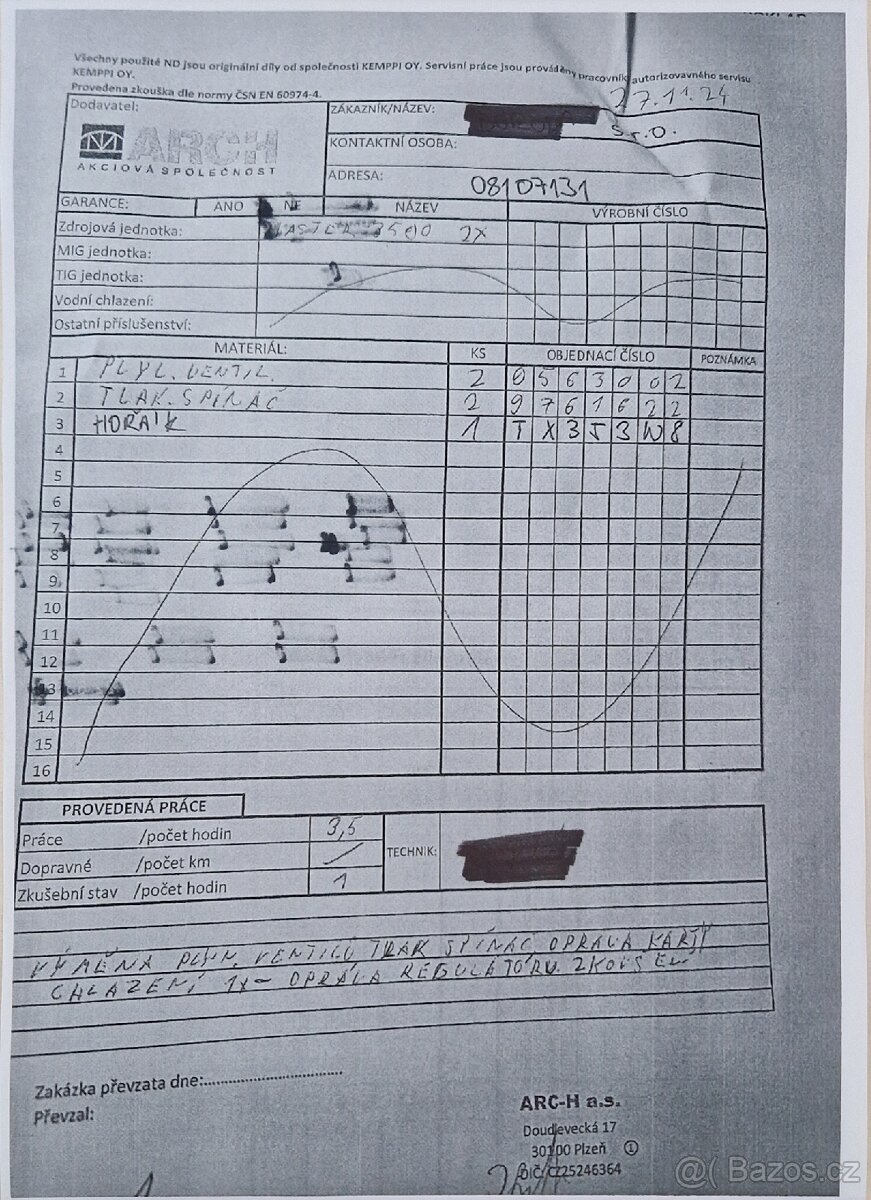 Všechny použité ND jsou originální díly od společnosti KEMPPI OY. Servisní práce jsou prováděny pracovník autorizovaného servisu
KEMPPI OY.
Provedena zkouška dle normy ČSN EN 60974-4.
27.11.24
Dodavatel:
ARC-H
AKCIOVÁ SPOLEČNOST
ZÁKAZNÍK/NÁZEV:
s.r.o.
KONTAKTNÍ OSOBA:
ADRESA:
08107131
GARANCE: ANO NE NÁZEV VÝROBNÍ ČÍSLO
Zdrojová jednotka: MASTER 3500 2X
MIG jednotka:
TIG jednotka:
Vodní chlazení:
Ostatní příslušenství:
MATERIÁL: KS OBJEDNACÍ ČÍSLO POZNÁMKA
1 PLYL. VENTIL 2 0563002
2 TLAK. SPÍNAČ 2 9761622
3 HOŘÁK 1 TX353W8
4
5
6
7
8
9
10
11
12
13
14
15
16
PROVEDENÁ PRÁCE
Práce /počet hodin 3,5
Dopravné /počet km
Zkušební stav /počet hodin 1
TECHNIK:
VÝMĚNA PLYN. VENTILŮ, TLAK SPÍNAČ OPRAVA KARTY
CHLAZENÍ 1X – OPRAVA REGULÁTORU.
Zakázka převzata dne:
Převzal:
ARC-H a.s.
Doudlevecká 17
30100 Plzeň 1
DIČ: CZ25246364
@( Bazos.cz